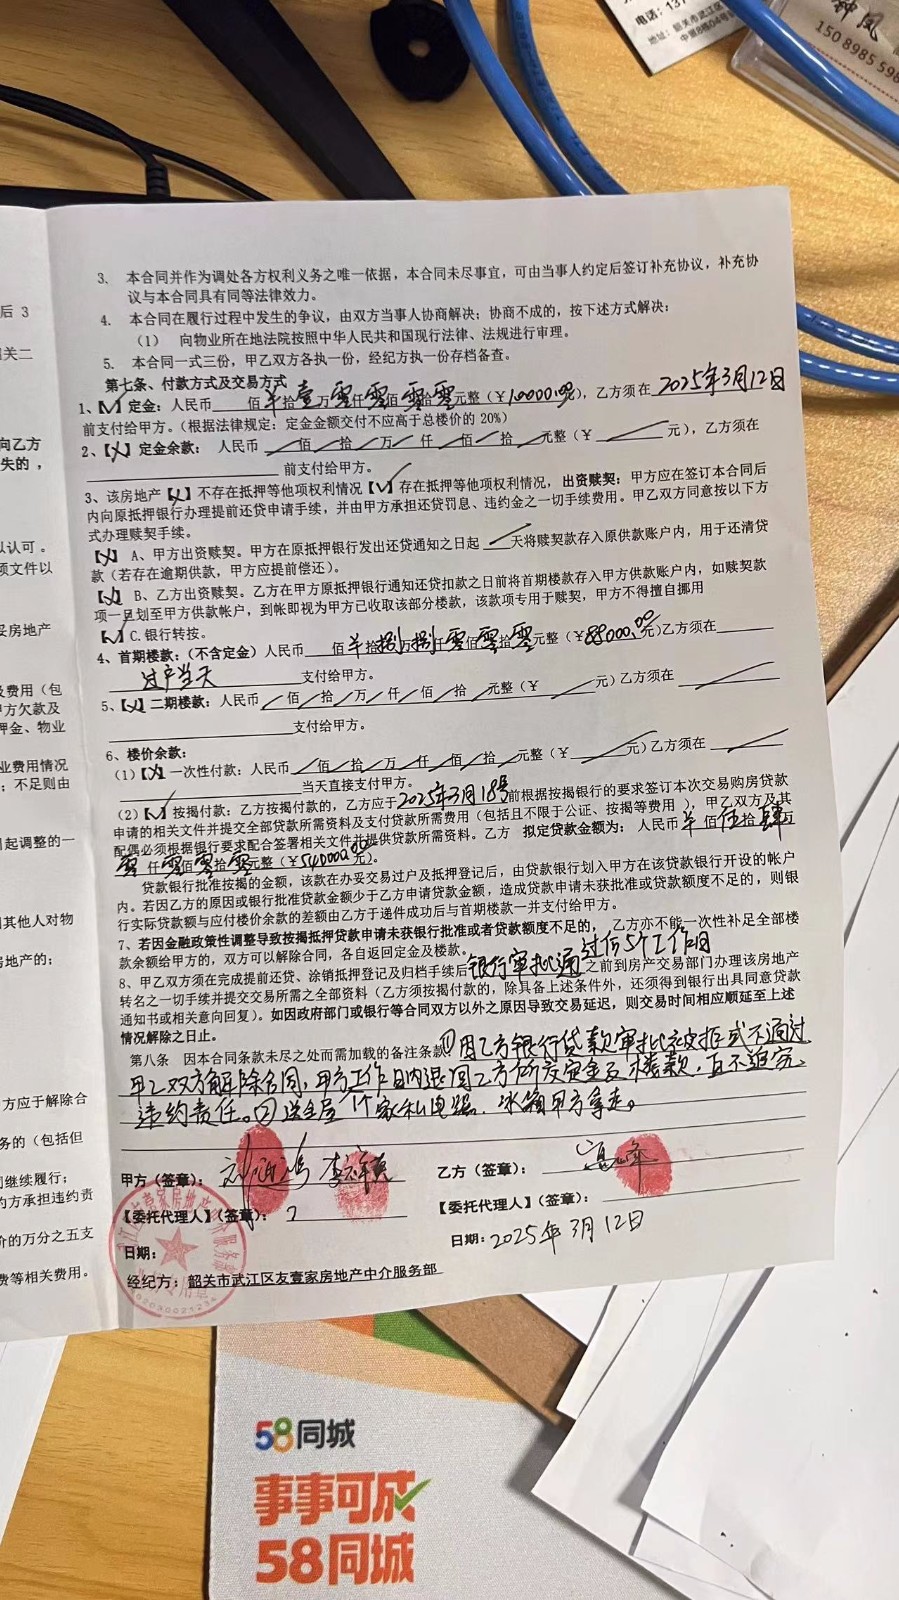 电话：137
地址：韶关市武江区
中第8栋04号
150 8985 598
3、本合同并作为调处各方权利义务之唯一依据，本合同未尽事宜，可由当事人约定后签订补充协议，补充协
议与本合同具有同等法律效力。
4、本合同在履行过程中发生的争议，由双方当事人协商解决；协商不成的，按下述方式解决：
（1） 向物业所在地法院按照中华人民共和国现行法律、法规进行审理。
5、本合同一式三份，甲乙双方各执一份，经纪方执一份存档备查。
第七条、付款方式及交易方式
1、【√】定金：人民币 佰 拾壹万零仟零佰零拾零元整（￥10000.00），乙方须在 2025年3月12日
前支付给甲方。（根据法律规定：定金金额交付不应高于总楼价的 20%）
2、【×】定金余款： 人民币 佰 拾 万 仟 佰 拾 元整（￥ 元），乙方须在
前支付给甲方。
3、该房地产【×】不存在抵押等他项权利情况【√】存在抵押等他项权利情况，出资赎契：甲方应在签订本合同后
内向原抵押银行办理提前还贷申请手续，并由甲方承担还贷罚息、违约金之一切手续费用。甲乙双方同意按以下方
式办理赎契手续。
【×】 A、甲方出资赎契。甲方在原抵押银行发出还贷通知之日起 天将赎契款存入原供款账户内，用于还清贷
款（若存在逾期供款，甲方应提前偿还）。
【×】 B、乙方出资赎契。乙方在甲方原抵押银行通知还贷扣款之日前将首期楼款存入甲方供款账户内，如赎契款
项一旦划至甲方供款帐户，到帐即视为甲方已收取该部分楼款，该款项专用于赎契，甲方不得擅自挪用
【√】C.银行转按。
4、首期楼款：（不含定金）人民币 佰 拾捌万捌仟零佰零拾零元整（￥88000.00元）乙方须在
过户当天 支付给甲方。
5、【×】二期楼款：人民币 佰 拾 万 仟 佰 拾 元整（￥ 元）乙方须在
支付给甲方。
6、楼价余款：
（1）【×】一次性付款：人民币 佰 拾 万 仟 佰 拾 元整（￥ 元）乙方须在
当天直接支付甲方。
（2）【√】按揭付款：乙方按揭付款的，乙方应于2025年3月18号前根据按揭银行的要求签订本次交易购房贷款
申请的相关文件并提交全部贷款所需资料及支付贷款所需费用（包括且不限于公证、按揭等费用），甲乙双方及其
配偶必须根据银行要求配合签署相关文件并提供贷款所需资料。乙方 拟定贷款金额为： 人民币 佰伍拾肆万
零仟零佰零拾零元整（￥540000.00元）。
贷款银行批准按揭的金额，该款在办妥交易过户及抵押登记后，由贷款银行划入甲方在该贷款银行开设的帐户
内。若因乙方的原因或银行批准贷款金额少于乙方申请贷款金额，造成贷款申请未获批准或贷款额度不足的，则银
行实际贷款额与应付楼价余款的差额由乙方于递件成功后与首期楼款一并支付给甲方。
7、若因金融政策性调整导致按揭抵押贷款申请未获银行批准或者贷款额度不足的，乙方亦不能一次性补足全部楼
款余额给甲方的，双方可以解除合同，各自返回定金及楼款。
8、甲乙双方须在完成提前还贷、涂销抵押登记及归档手续后银行审批通过何5个工作日之前到房产交易部门办理该房地产
转名之一切手续并提交交易所需之全部资料（乙方须按揭付款的，除具备上述条件外，还须得到银行出具同意贷款
通知书或相关意向回复）。如因政府部门或银行等合同双方以外之原因导致交易延迟，则交易时间相应顺延至上述
情况解除之日止。
第八条 因本合同条款未尽之处而需加载的备注条款①因乙方银行贷款审批被拒或不通过
甲乙双方解除合同，甲方工作日内退回乙方所有定金及楼款，且不追究
违约责任。②送全屋家私电器，冰箱甲方拿走。
甲方（签章）：
乙方（签章）：
【委托代理人】（签章）：
【委托代理人】（签章）：
日期：
日期：2025年3月12日
经纪方：韶关市武江区友壹家房地产中介服务部
后 3
关二
向乙方
失的，
认可。
项文件以
妥房地产
及费用（包
甲方欠款及
押金、物业
业费用情况
；不足则由
引起调整的一
其他人对物
房地产的；
方应于解除合
务的（包括但
继续履行；
约方承担违约责
价的万分之五支
费等相关费用。
58同城
事事可成
58同城